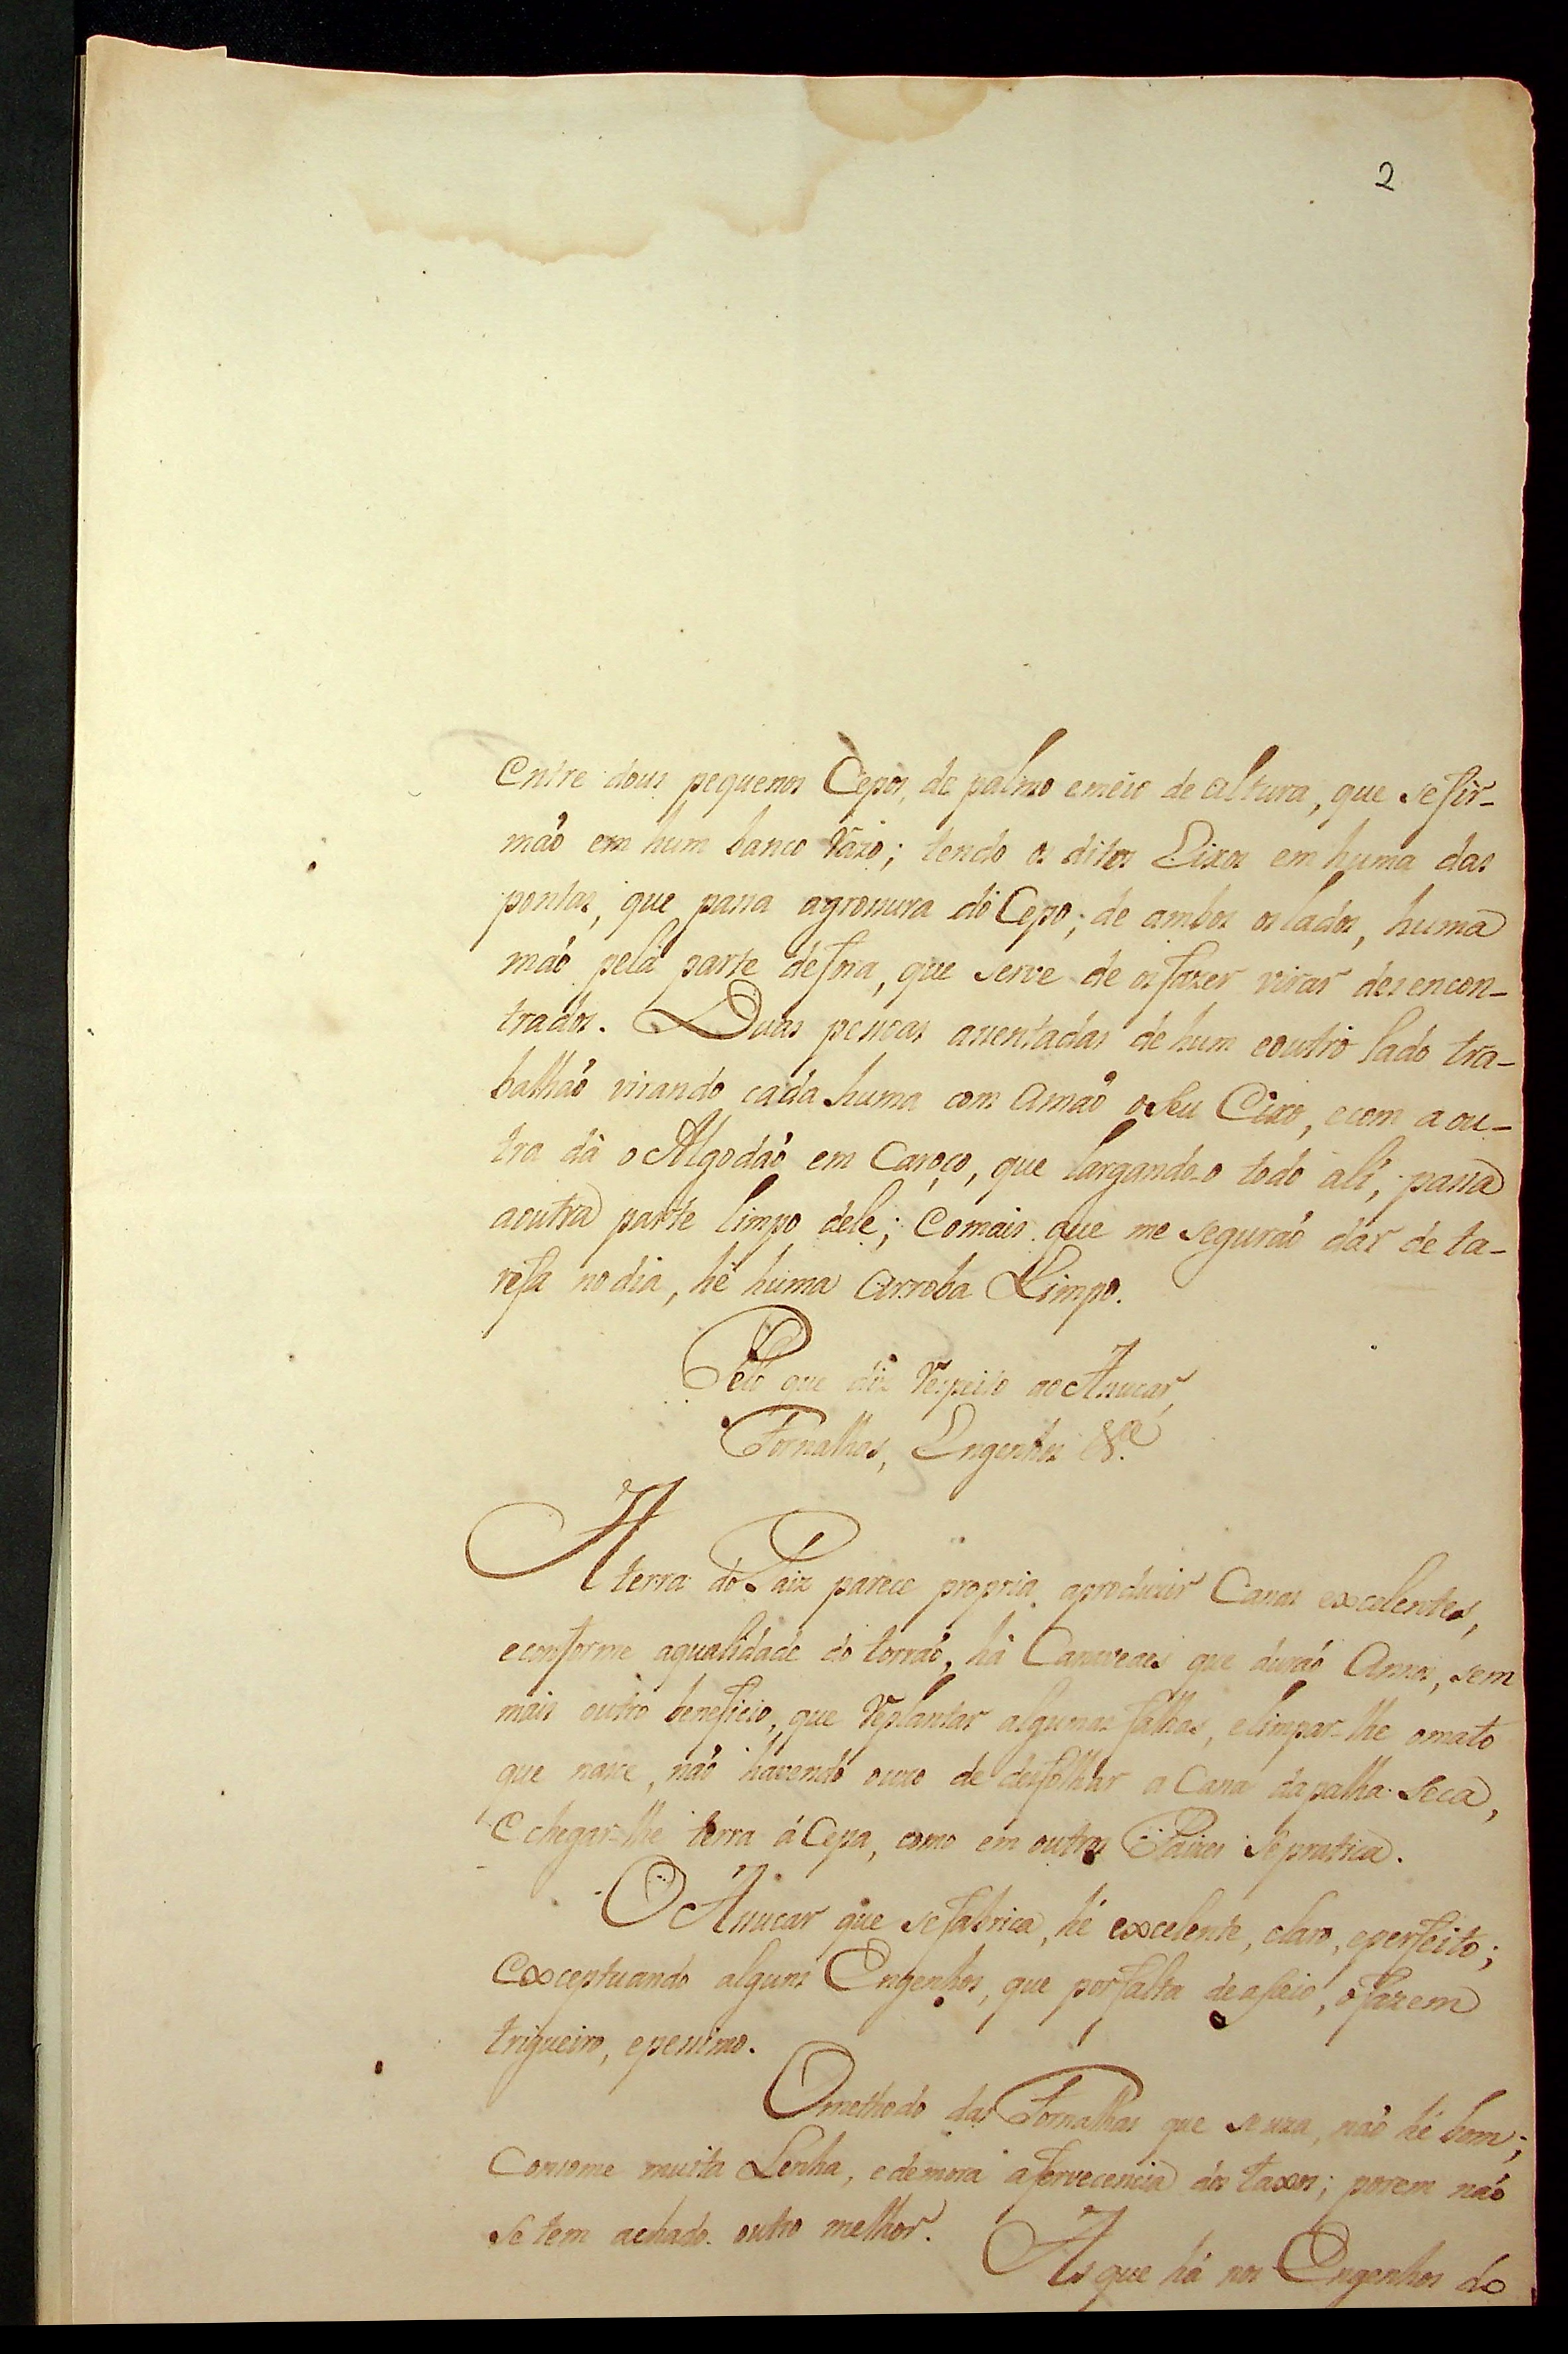 2
Entre dous pequenos Cepos, de palmo emeio de altura, que sefir-
mão em hum banco Razo; tendo os ditos Eixos em huma das
pontas, que passa agrossura do Cepo, de ambos os lados, huma
mão pela parte defora, que serve de osfazer virar desencon-
trados. Duas pessoas assentadas de hum eoutro lado tra-
balhão virando cada huma com amão oseu Eixo, ecom aou-
tra dá o Algodão em Caroço, que largando-o todo ali, passa
aoutra parte limpo dele; Eomais que me segurão dar de ta-
refa nodia, hé huma Arroba Limpo.
Pelo que diz Respeito ao Assucar,
Fornalhas, Engenhos &.ª
A terra do Paiz parece propria aproduzir Canas excelentes,
econforme aqualidade do torrão, há Canaveaes que durão Annos, sem
mais outro beneficio, que Replantar algumas falhas, elimpar-lhe omato
que nasce, não havendo ouzo de desfolhar a Cana dapalha Seca,
Echegar-lhe terra á Cepa, como em outros Paizes Sepratica.
O Assucar que sefabrica, hé excelente, claro, eperfeito;
Exceptuando alguns Engenhos, que porfalta deasseio, ofazem
trigueiro, epessimo.
Omethodo das Fornalhas que seuza, não hé bom;
Consome muita Lenha, edemora afervecencia dos taxos; porem não
Se tem achado outro melhor.
As que há nos Engenhos do